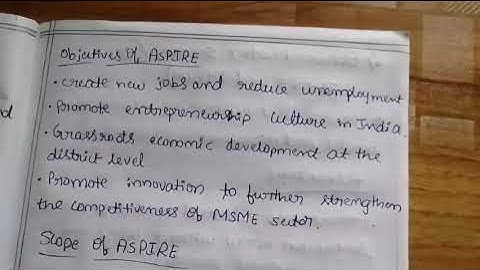 Objectives of ASPIRE
• create new jobs and reduce unemployment
• Promote entrepreneurship culture in India.
• Grassroots economic development at the
district level
• Promote innovation to further strengthen
the competitiveness of MSME sector.
Slope of ASPIRE